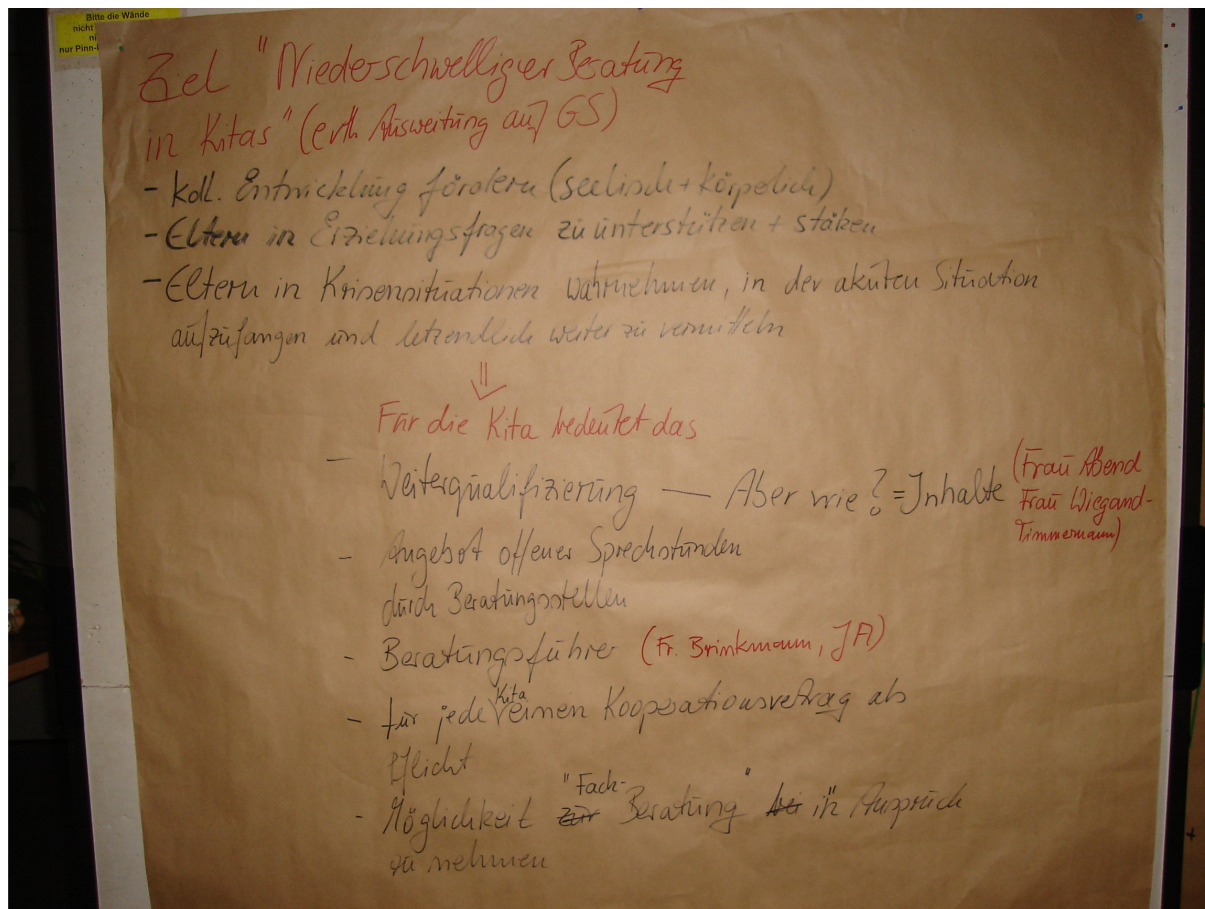 Bitte die Wände
nicht
ni
nur Pinn-
Ziel "Niederschwelliger Beratung
in Kitas" (evtl. Ausweitung auf GS)
- Entwicklung fördern (seelisch + körperlich)
- Eltern in Erziehungsfragen zu unterstützen + stäken
- Eltern in Krisensituationen wahrnehmen, in der akuten Situation
aufzufangen und letzendlich weiter zu vermitteln
⇓
Für die Kita bedeutet das
- Weiterqualifizierung — Aber wie? = Inhalte (Frau Abend
Frau Wiegand-
Timmermann)
- Angebot offener Sprechstunden
durch Beratungsstellen
- Beratungsführer (Fr. Brinkmann, JA)
- für jede Kita einen Kooperationsvertrag als
Pflicht
- Möglichkeit zur "Fach-Beratung" bei in Anspruch
zu nehmen